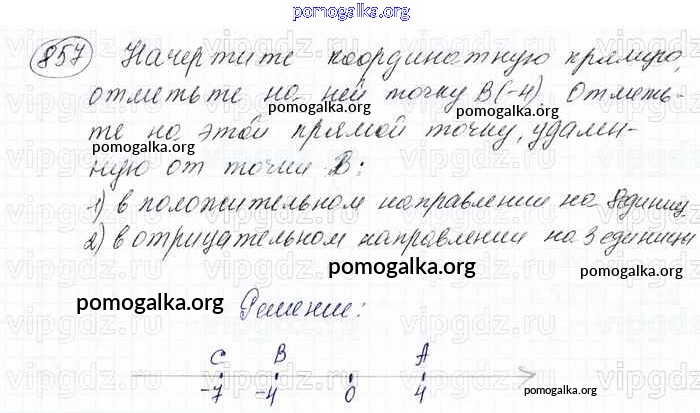 pomogalka.org
857 Начертите координатную прямую,
отметьте на ней точку B(-4). Отметь-
pomogalka.org pomogalka.org
те на этой прямой точку, удален-
pomogalka.org
ную от точки B:
1) в положительном направлении на 8 единиц
2) в отрицательном направлении на 3 единицы
pomogalka.org
pomogalka.org
Решение:
pomogalka.org
C B A
-7 -4 0 4
pomogalka.org pomogalka.org
vipgdz.ru vipgdz.ru vipgdz.ru vipgdz.ru